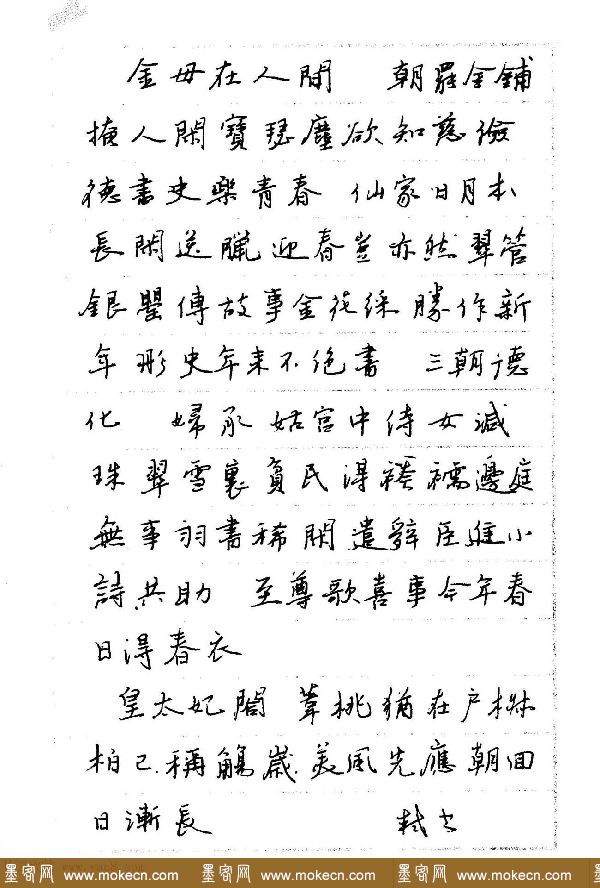 金母在人間 朝罷金鋪
掩人閑寶瑟塵欲知慈儉
德書史樂青春 仙家日月本
長閑送臘迎春豈亦然翠管
銀罌傳故事金花綵勝作新
年彤史年来不绝書 三朝德
化 婦承姑宫中侍女減
珠翠雪裏貧民得褲襦邊庭
無事羽書稀閑遣辭臣進小
詩共助 至尊歌喜事今年春
日得春衣
皇太妃閣 葦桃猶在户椒
柏已稱觴歲美風先應朝回
日漸長 軾書
墨客网 www.mokecn.com 墨客网 www.mokecn.com 墨客网 www.mokecn.com